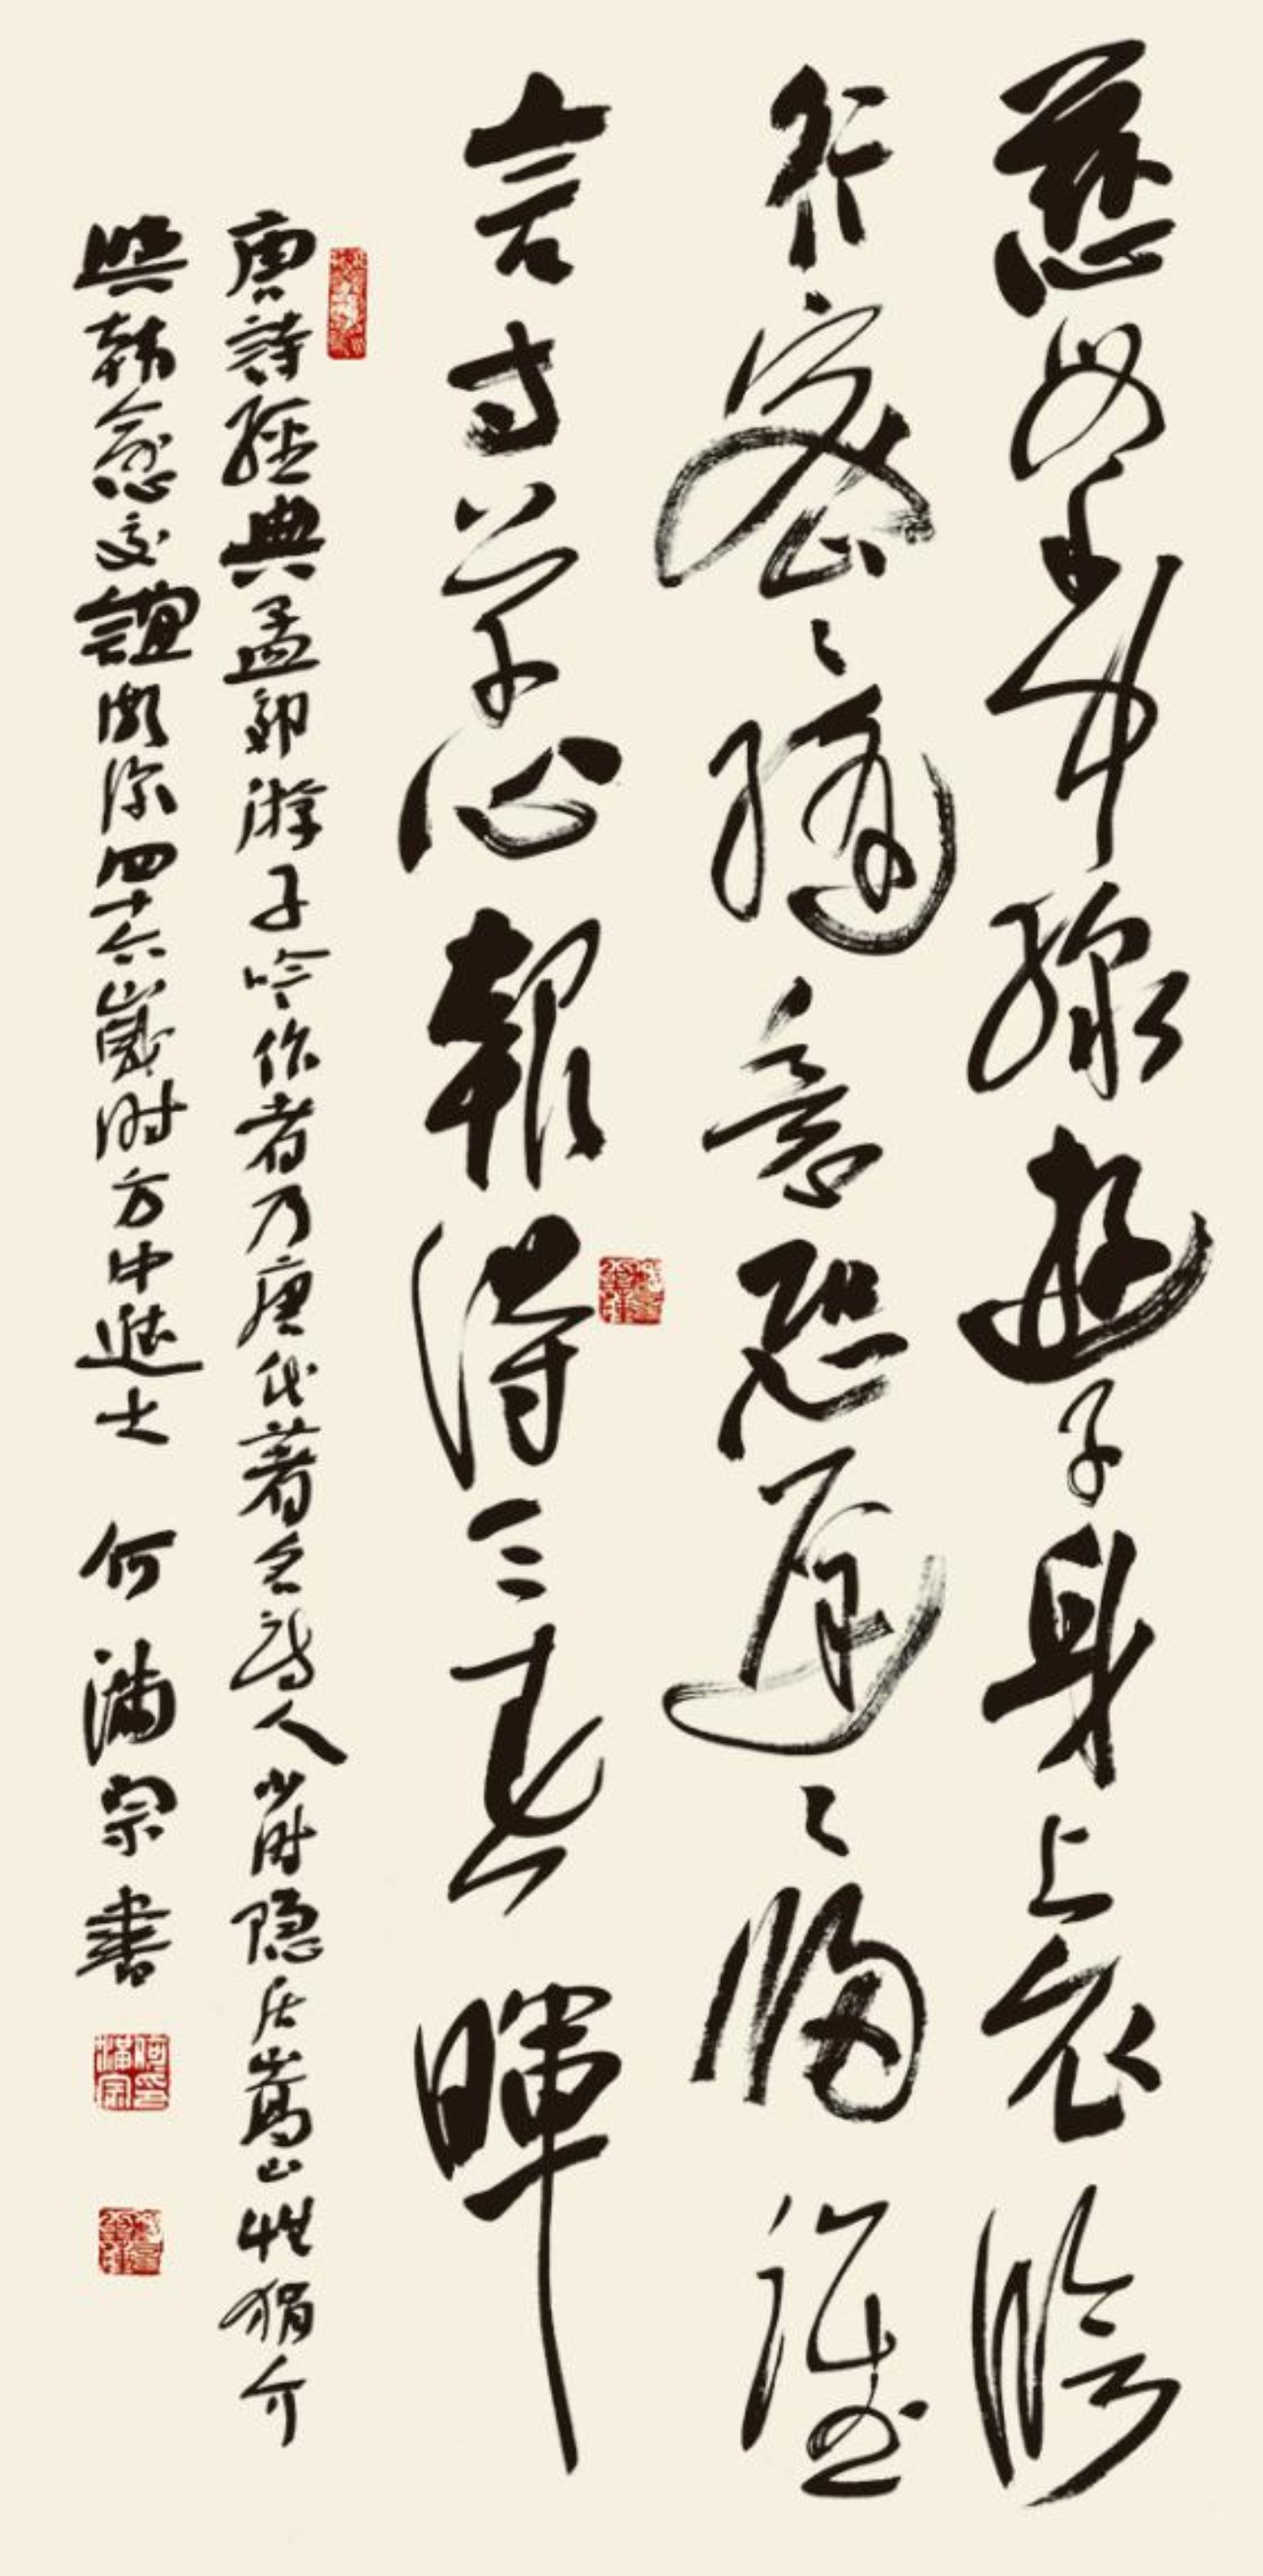 慈母手中線遊子身上衣臨
行密密縫意恐遲遲歸誰
言寸草心報得三春暉
唐詩經典孟郊游子吟作者乃唐代著名詩人少時隐居嵩山性狷介
與韩愈交誼頗深四十六歲时方中進士 何满宗書